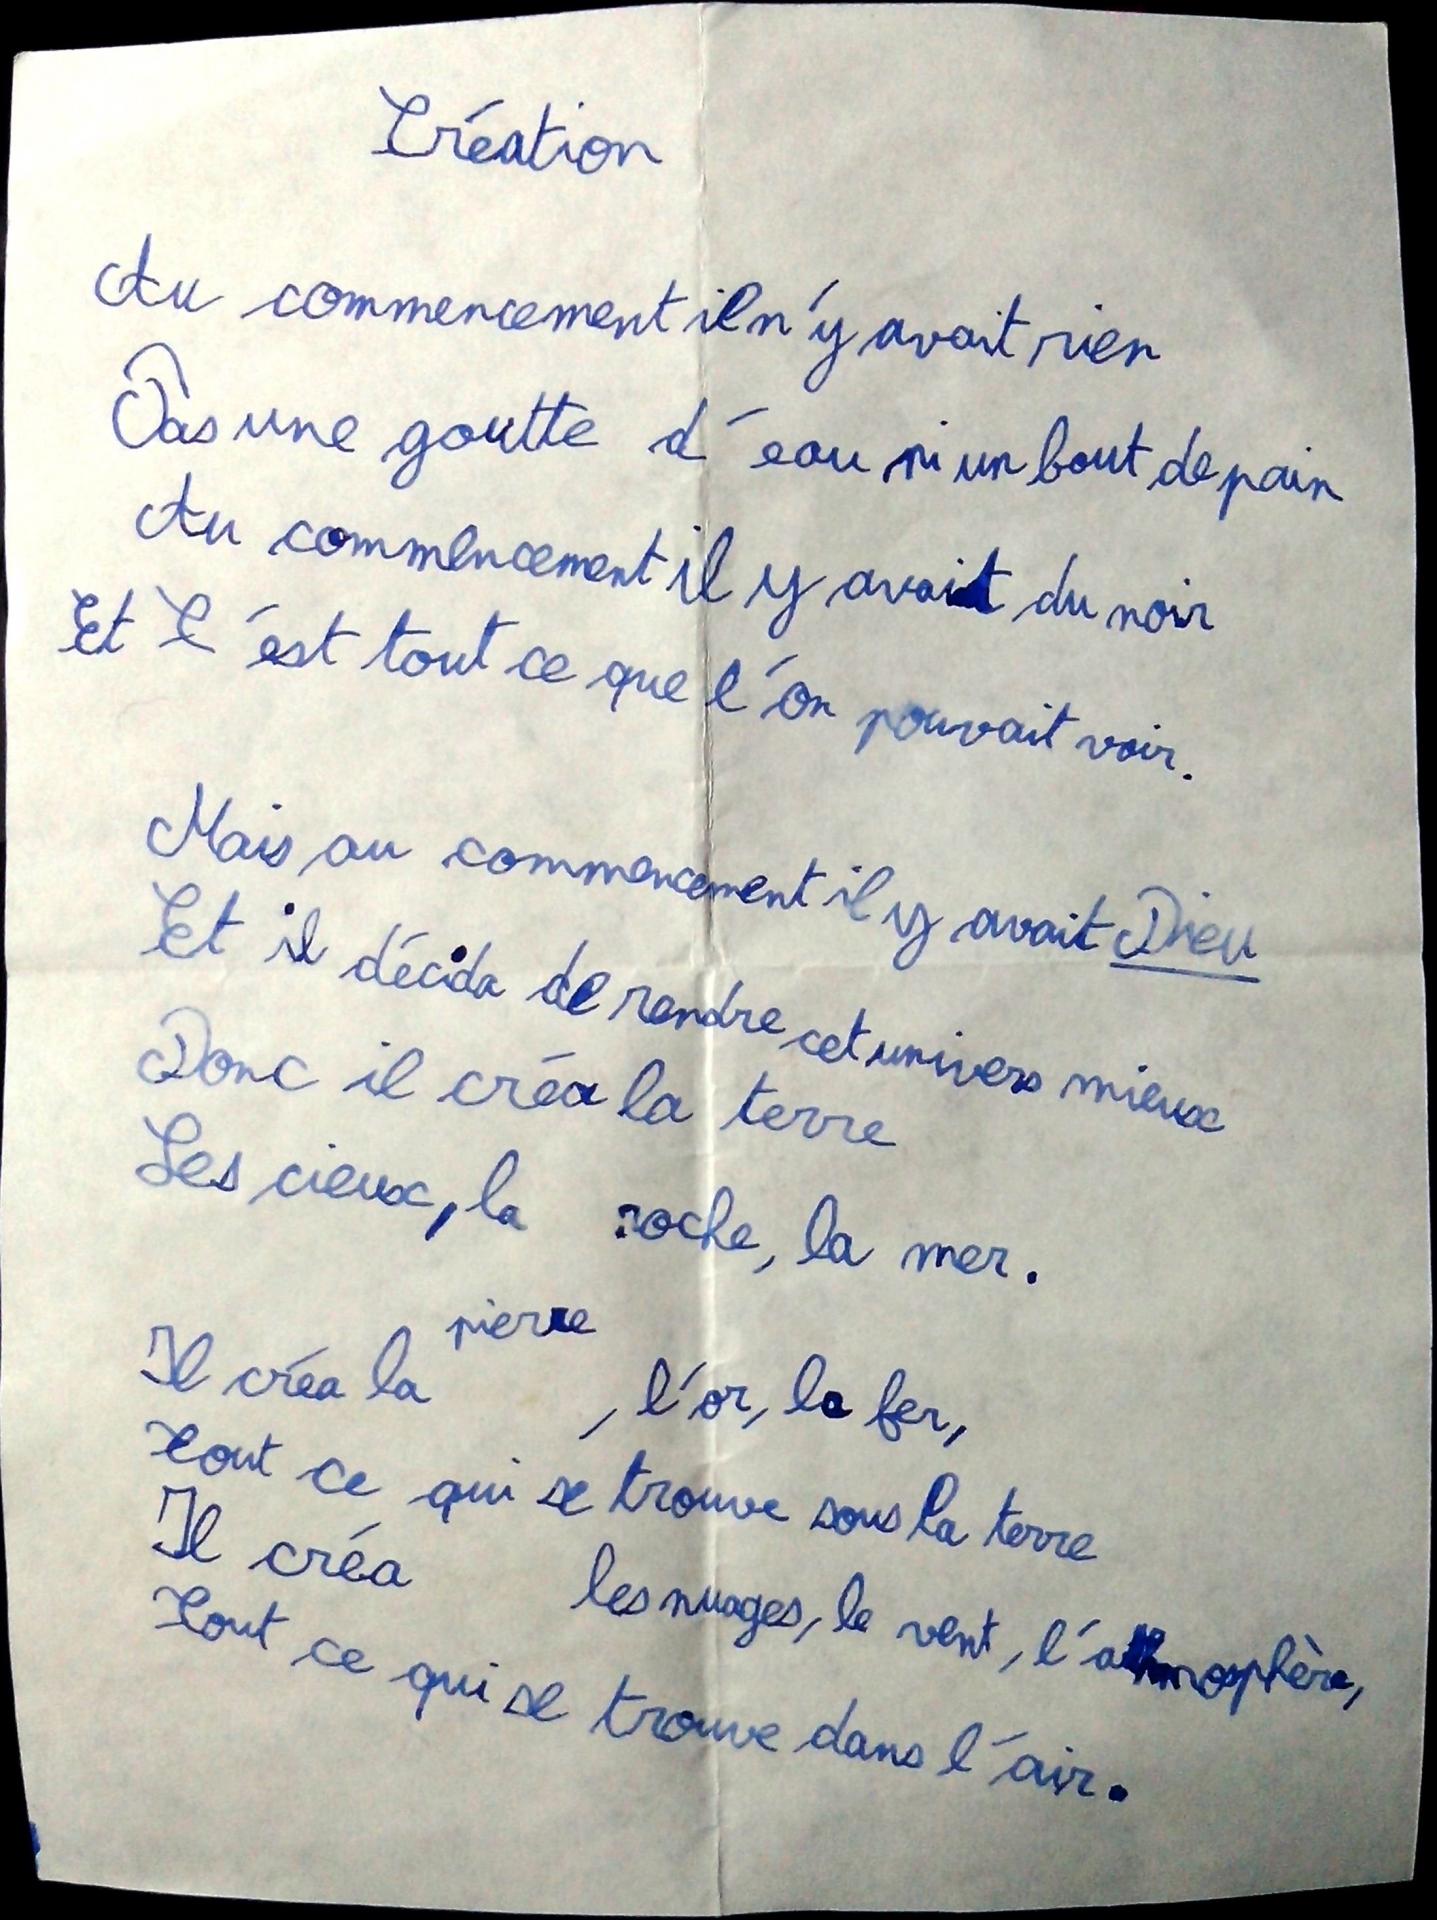 Création
Au commencement il n'y avait rien
Pas une goutte d'eau ni un bout de pain
Au commencement il y avait du noir
Et C'est tout ce que l'on pouvait voir.
Mais au commencement il y avait Dieu
Et il décida de rendre cet univers mieux
Donc il créa la terre
Les cieux, la roche, la mer.
Il créa la pierre, l'or, le fer,
Tout ce qui se trouve sous la terre
Il créa les nuages, le vent, l'athmosphère,
Tout ce qui se trouve dans l'air.